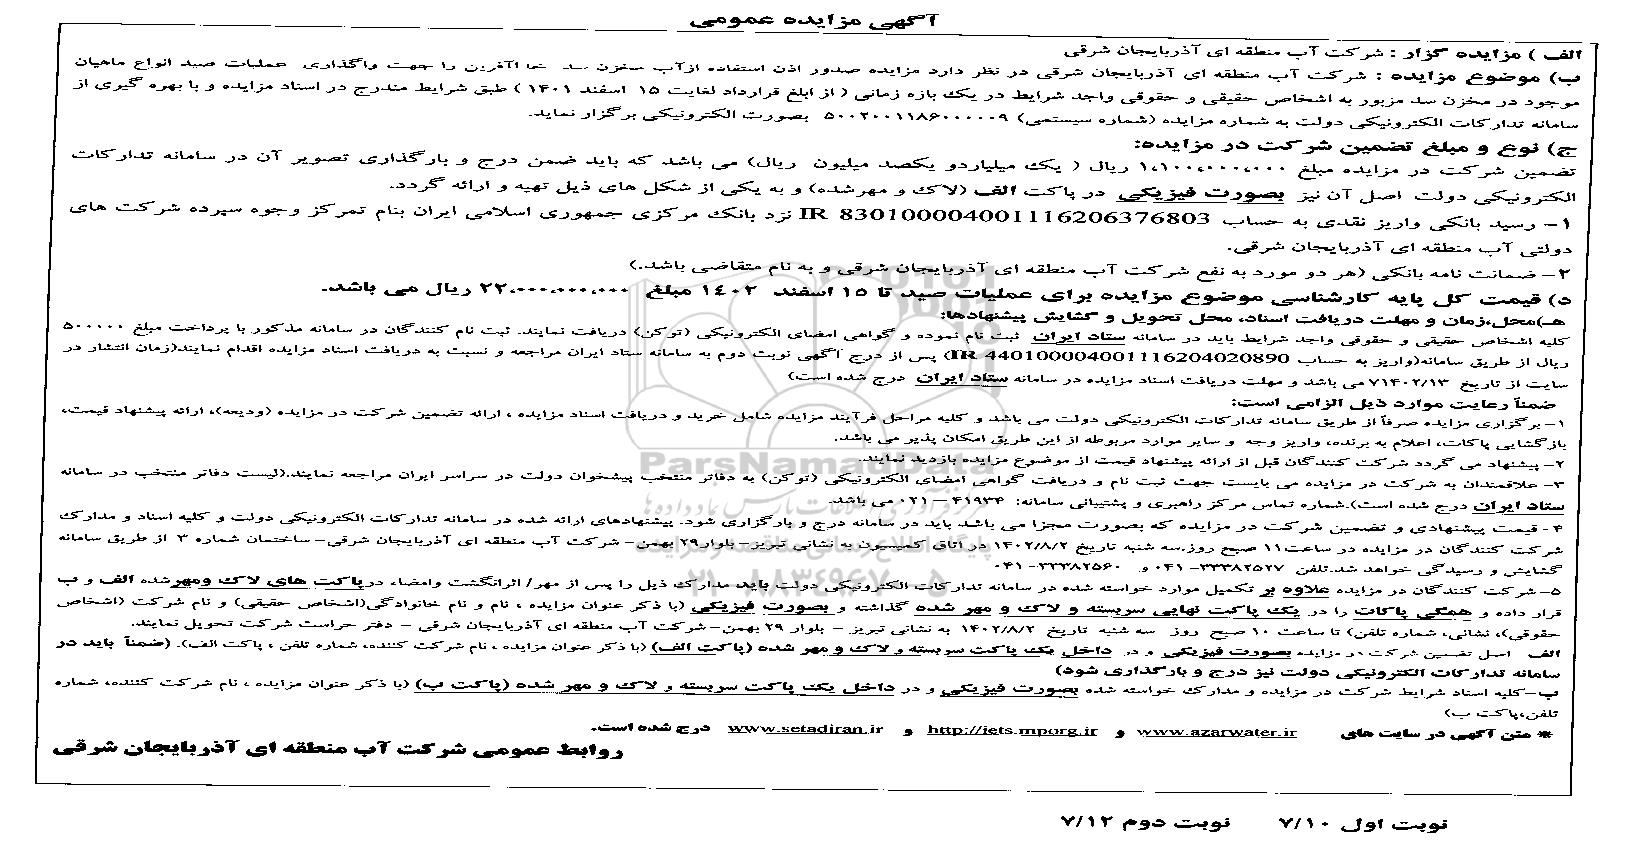 آگهی مزایده عمومی
الف ) مزایده گزار : شرکت آب منطقه ای آذربایجان شرقی
ب) موضوع مزایده : شرکت آب منطقه ای آذربایجان شرقی در نظر دارد مزایده صدور اذن استفاده ازآب مخزن سد خداآفرین را جهت واگذاری عملیات صید انواع ماهیان
موجود در مخزن سد مزبور به اشخاص حقیقی و حقوقی واجد شرایط در یک بازه زمانی ( از ابلغ قرارداد لغایت ۱۵ اسفند ۱۴۰۱ ) طبق شرایط مندرج در اسناد مزایده و با بهره گیری از
سامانه تدارکات الکترونیکی دولت به شماره مزایده (شماره سیستمی) ۵۰۰۲۰۰۱۱۸۶۰۰۰۰۰۹ بصورت الکترونیکی برگزار نماید.
ج) نوع و مبلغ تضمین شرکت در مزایده:
تضمین شرکت در مزایده مبلغ ۱،۱۰۰،۰۰۰،۰۰۰ ریال ( یک میلیاردو یکصد میلیون ریال) می باشد که باید ضمن درج و بارگذاری تصویر آن در سامانه تدارکات
الکترونیکی دولت اصل آن نیز بصورت فیزیکی در پاکت الف (لاک و مهرشده) و به یکی از شکل های ذیل تهیه و ارائه گردد.
۱- رسید بانکی واریز نقدی به حساب IR 830100004001116206376803 نزد بانک مرکزی جمهوری اسلامی ایران بنام تمرکز وجوه سپرده شرکت های
دولتی آب منطقه ای آذربایجان شرقی.
۲- ضمانت نامه بانکی (هر دو مورد به نفع شرکت آب منطقه ای آذربایجان شرقی و به نام متقاضی باشد.)
د) قیمت کل پایه کارشناسی موضوع مزایده برای عملیات صید تا ۱۵ اسفند ۱۴۰۲ مبلغ ۲۲،۰۰۰،۰۰۰،۰۰۰ ریال می باشد.
هـ)محل،زمان و مهلت دریافت اسناد، محل تحویل و گشایش پیشنهادها:
کلیه اشخاص حقیقی و حقوقی واجد شرایط باید در سامانه ستاد ایران ثبت نام نموده و گواهی امضای الکترونیکی (توکن) دریافت نمایند. ثبت نام کنندگان در سامانه مذکور با پرداخت مبلغ ۵۰۰۰۰۰
ریال از طریق سامانه(واریز به حساب IR 440100004001116204020890) پس از درج آگهی نوبت دوم به سامانه ستاد ایران مراجعه و نسبت به دریافت اسناد مزایده اقدام نمایند(زمان انتشار در
سایت از تاریخ ۷۱۴۰۲/۱۳ می باشد و مهلت دریافت اسناد مزایده در سامانه ستاد ایران درج شده است)
ضمناً رعایت موارد ذیل الزامی است:
۱- برگزاری مزایده صرفاً از طریق سامانه تدارکات الکترونیکی دولت می باشد و کلیه مراحل فرآیند مزایده شامل خرید و دریافت اسناد مزایده ، ارائه تضمین شرکت در مزایده (ودیعه)، ارائه پیشنهاد قیمت،
بازگشایی پاکات، اعلام به برنده، واریز وجه و سایر موارد مربوطه از این طریق امکان پذیر می باشد.
۲- پیشنهاد می گردد شرکت کنندگان قبل از ارائه پیشنهاد قیمت از موضوع مزایده بازدید نمایند.
۳- علاقمندان به شرکت در مزایده می بایست جهت ثبت نام و دریافت گواهی امضای الکترونیکی (توکن) به دفاتر منتخب پیشخوان دولت در سراسر ایران مراجعه نمایند.(لیست دفاتر منتخب در سامانه
ستاد ایران درج شده است).شماره تماس مرکز راهبری و پشتیبانی سامانه: ۴۱۹۳۴ - ۰۲۱ می باشد.
۴- قیمت پیشنهادی و تضمین شرکت در مزایده که بصورت مجزا می باشد باید در سامانه درج و بارگزاری شود. پیشنهادهای ارائه شده در سامانه تدارکات الکترونیکی دولت و کلیه اسناد و مدارک
شرکت کنندگان در مزایده در ساعت۱۱ صبح روز.سه شنبه تاریخ ۱۴۰۲/۸/۲ در اتاق کمیسیون به نشانی تبریز- بلوار۲۹ بهمن- شرکت آب منطقه ای آذربایجان شرقی- ساختمان شماره ۳ از طریق سامانه
گشایش و رسیدگی خواهد شد.تلفن ۳۳۳۸۲۵۲۷- ۰۴۱ و ۳۳۳۸۲۵۶۰- ۰۴۱
۵- شرکت کنندگان در مزایده علاوه بر تکمیل موارد خواسته شده در سامانه تدارکات الکترونیکی دولت باید مدارک ذیل را پس از مهر/ اثرانگشت وامضاء در پاکت های لاک ومهرشده الف و ب
قرار داده و همگی پاکات را در یک پاکت نهایی سربسته و لاک و مهر شده گذاشته و بصورت فیزیکی (با ذکر عنوان مزایده ، نام و نام خانوادگی(اشخاص حقیقی) و نام شرکت (اشخاص
حقوقی)، نشانی، شماره تلفن) تا ساعت ۱۰ صبح روز سه شنبه تاریخ ۱۴۰۲/۸/۲ به نشانی تبریز - بلوار ۲۹ بهمن- شرکت آب منطقه ای آذربایجان شرقی - دفتر حراست شرکت تحویل نمایند.
الف اصل تضمین شرکت در مزایده بصورت فیزیکی و در داخل یک پاکت سربسته و لاک و مهر شده (پاکت الف) (با ذکر عنوان مزایده ، نام شرکت کننده، شماره تلفن ، پاکت الف). (ضمناً باید در
سامانه تدارکات الکترونیکی دولت نیز درج و بارگذاری شود)
ب-کلیه اسناد شرایط شرکت در مزایده و مدارک خواسته شده بصورت فیزیکی و در داخل یک پاکت سربسته و لاک و مهر شده (پاکت ب) (با ذکر عنوان مزایده ، نام شرکت کننده، شماره
تلفن،پاکت ب)
* متن آگهی در سایت های www.azarwater.ir و http://iets.mporg.ir و www.setadiran.ir درج شده است.
روابط عمومی شرکت آب منطقه ای آذربایجان شرقی
نوبت اول ۷/۱۰ نوبت دوم ۷/۱۲
ParsNamadData
۰۲۱-۸۸۳۴۹۶۷۰-۵